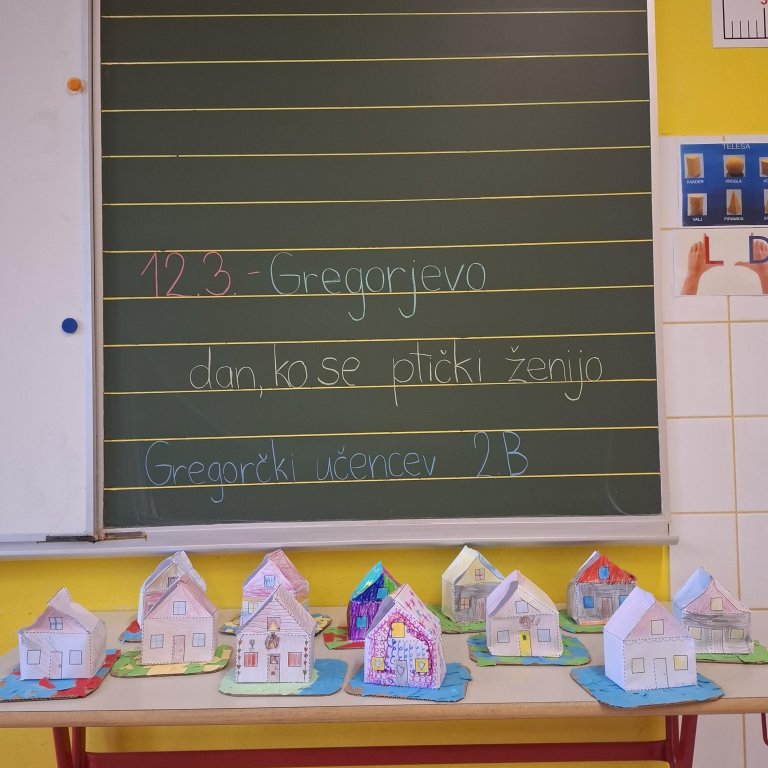 12.3.-Gregorjevo
dan, ko se ptički ženijo
Gregorčki učencev 2.B
TELESA
KVADER KROGLA
VALJ PIRAMIDA
L D